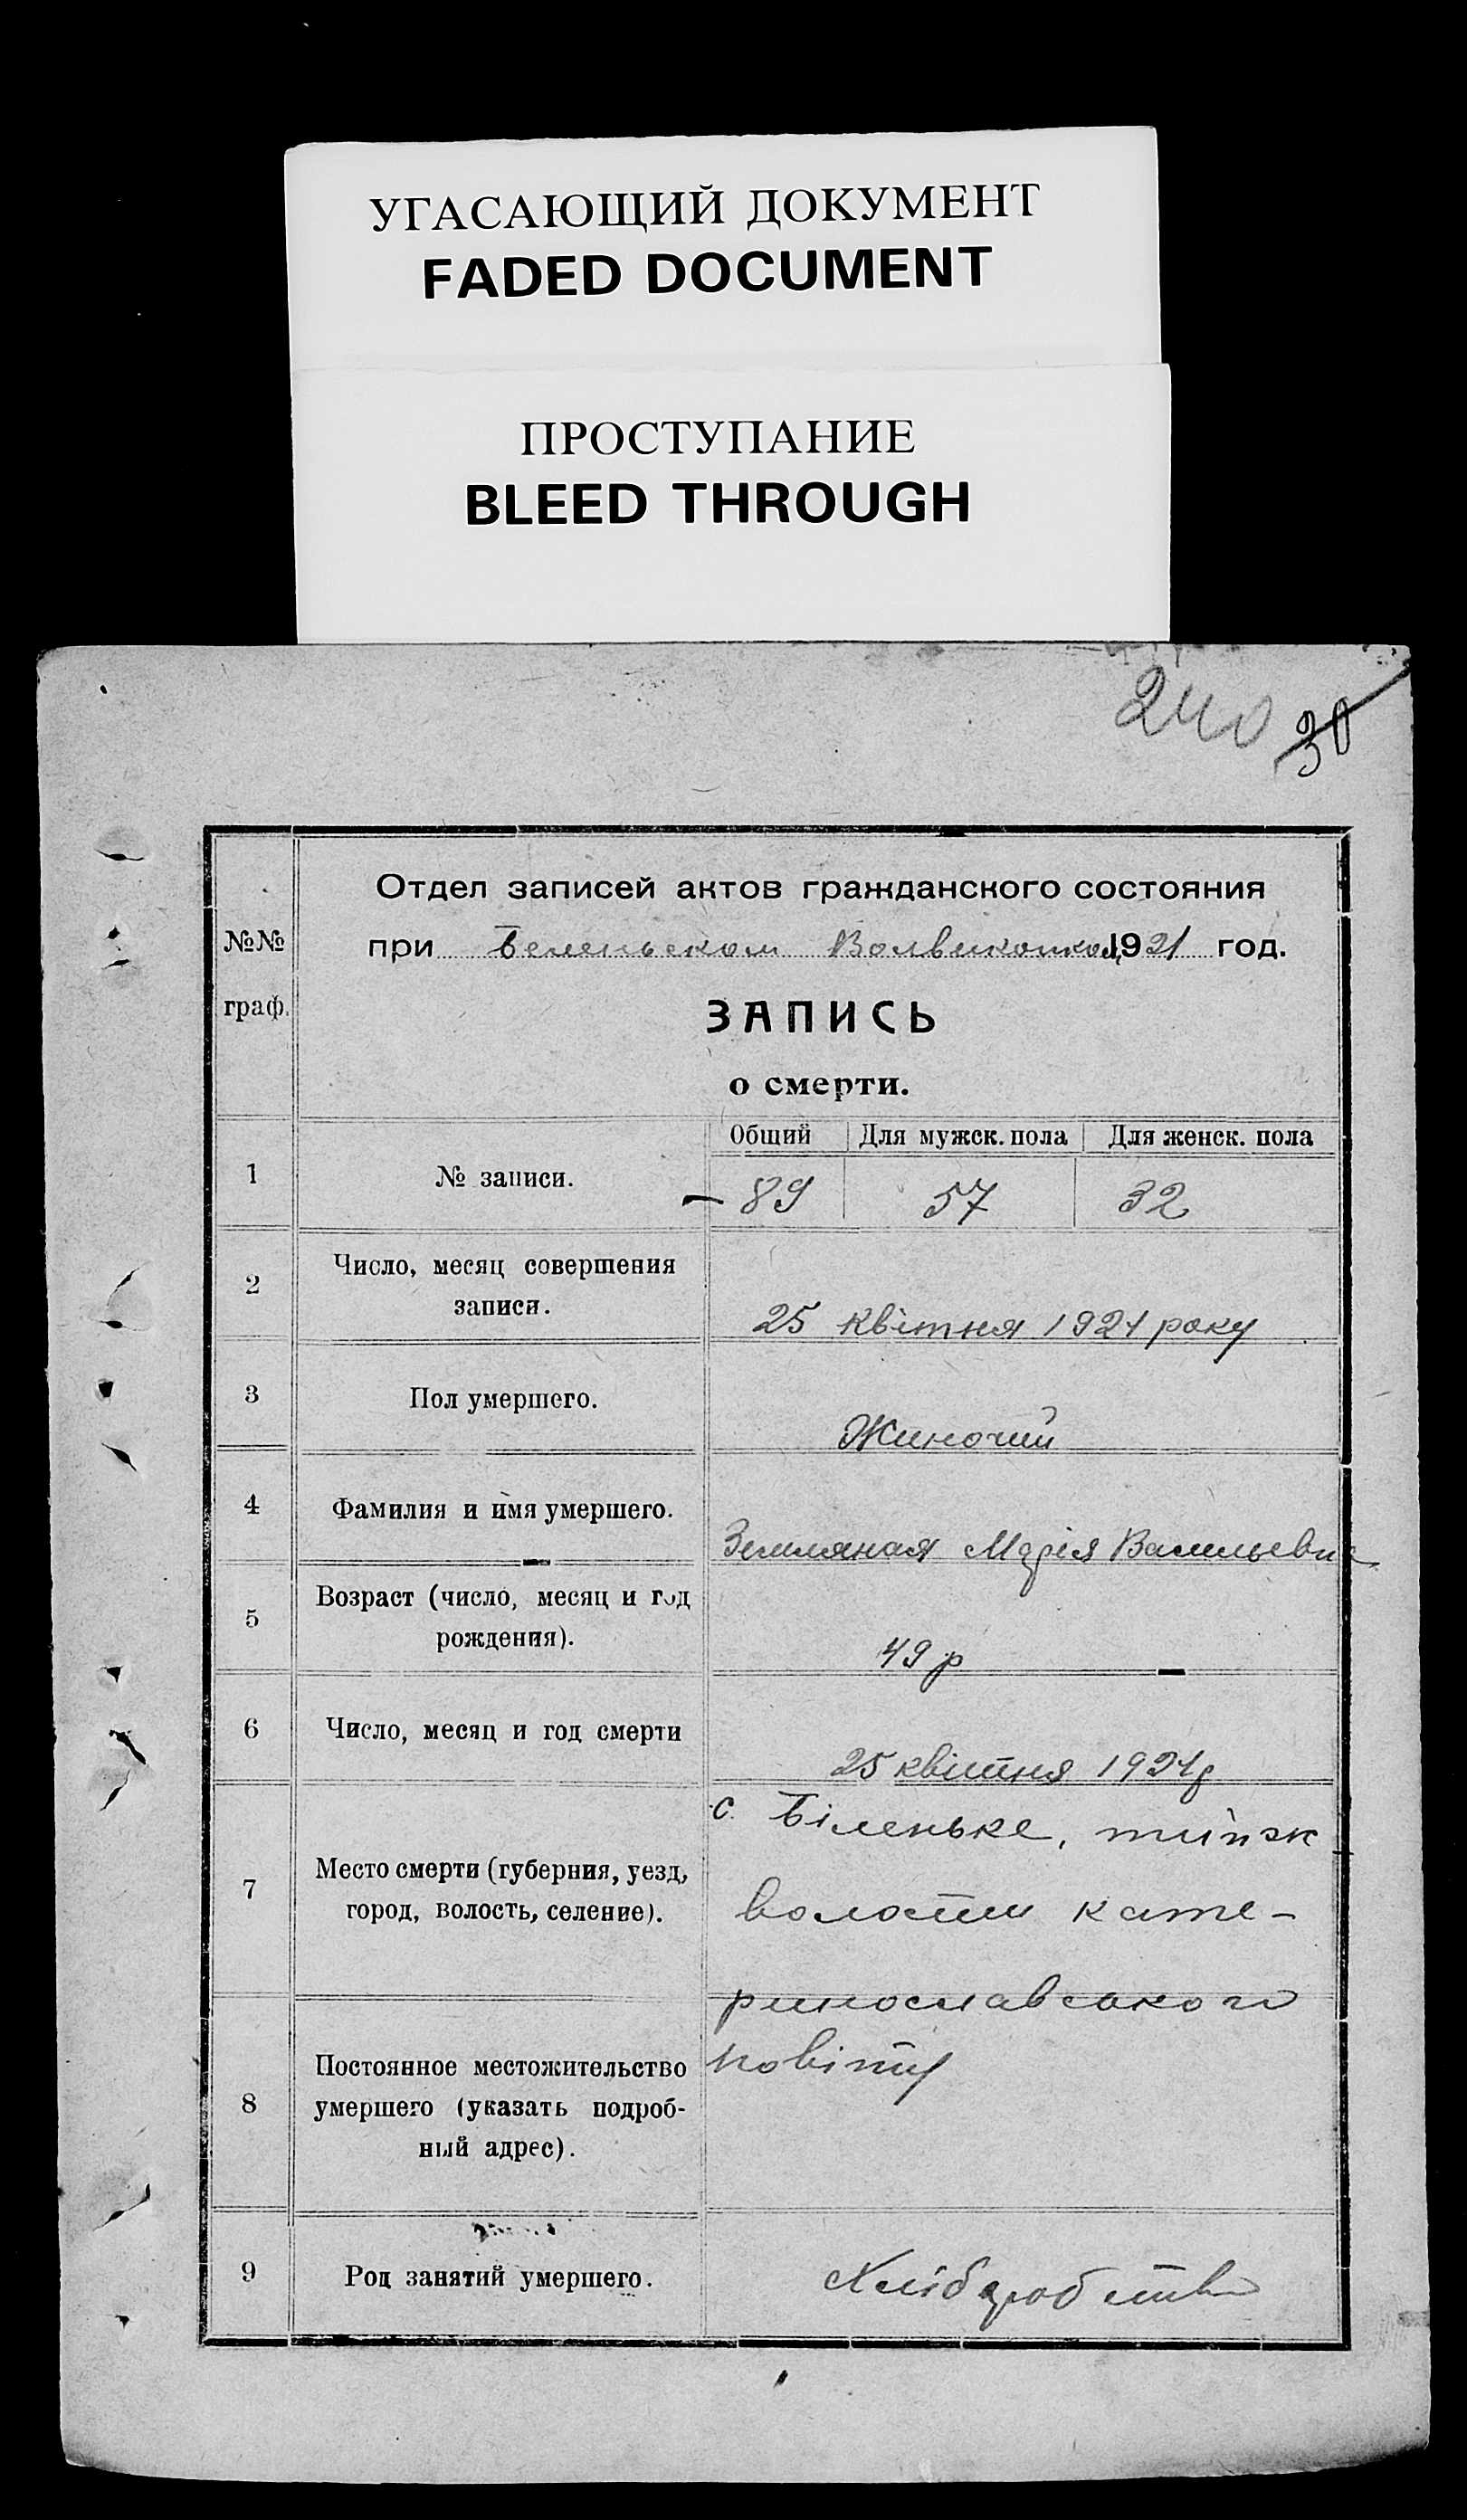 УГАСАЮЩИЙ ДОКУМЕНТ
FADED DOCUMENT
ПРОСТУПАНИЕ
BLEED THROUGH
240 30
Отдел записей актов гражданского состояния
№№ граф.
при Беленьском 1921 год.
ЗАПИСЬ
о смерти.
Общий Для мужск. пола Для женск. пола
1 № записи. 89 57 32
2 Число, месяц совершения
записи.
25 квітня 1921 року
3 Пол умершего.
Жиночий
4 Фамилия и имя умершего.
Земляная Марія Васильевна
5 Возраст (число, месяц и год
рождения).
49 р
6 Число, месяц и год смерти
25 квітня 1921 р
с. Біленьке,
7 Место смерти (губерния, уезд,
город, волость, селение).
волости кате-
ринославського
повіту
8 Постоянное местожительство
умершего (указать подроб-
ный адрес).
9 Род занятий умершего.
Хліборобство